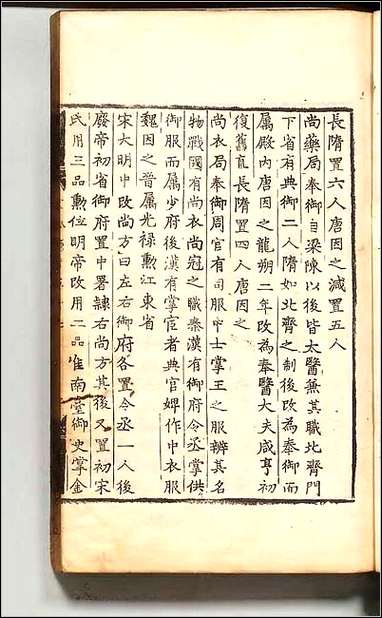 長隋置六人唐因之減置五人
尚藥局奉御自梁陳以後皆太醫兼其職北齊門
下省有典御二人隋如北齊之制後改為奉御而
属殿内唐因之龍朔二年改為奉醫大夫咸亨初
復舊直長隋置四人唐因之
尚衣局奉御周官有司服中士掌王之服辨其名
物戰國有尚衣尚冠之職秦漢有御府令丞掌供
御服而属少府後漢有掌宦者典官婢作中衣服
魏因之晉属光禄勲江東省
宋大明中改尚方曰左右御府各置令丞一人後
廢帝初省御府置中署隷右尚方其後又置初宋
氏用三品勲位明帝改用二品惟南臺御史掌金